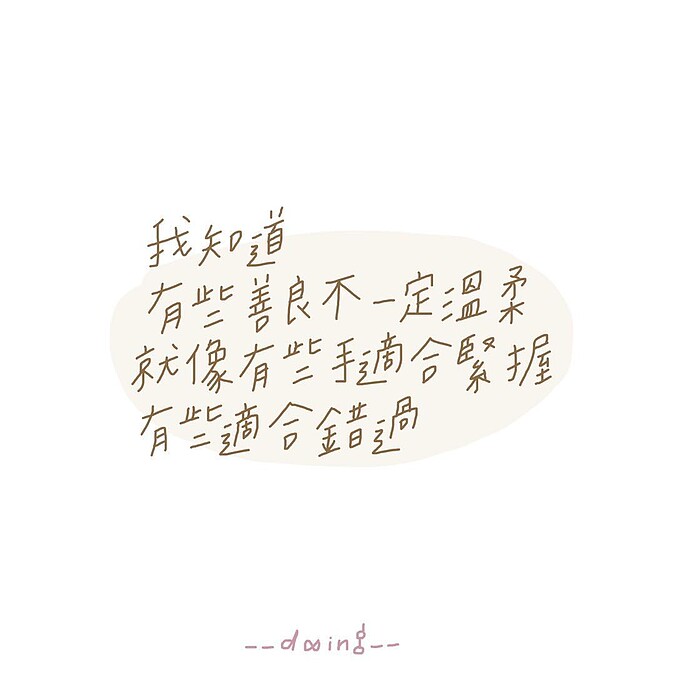 我知道
有些善良不一定溫柔
就像有些手適合緊握
有些適合錯過